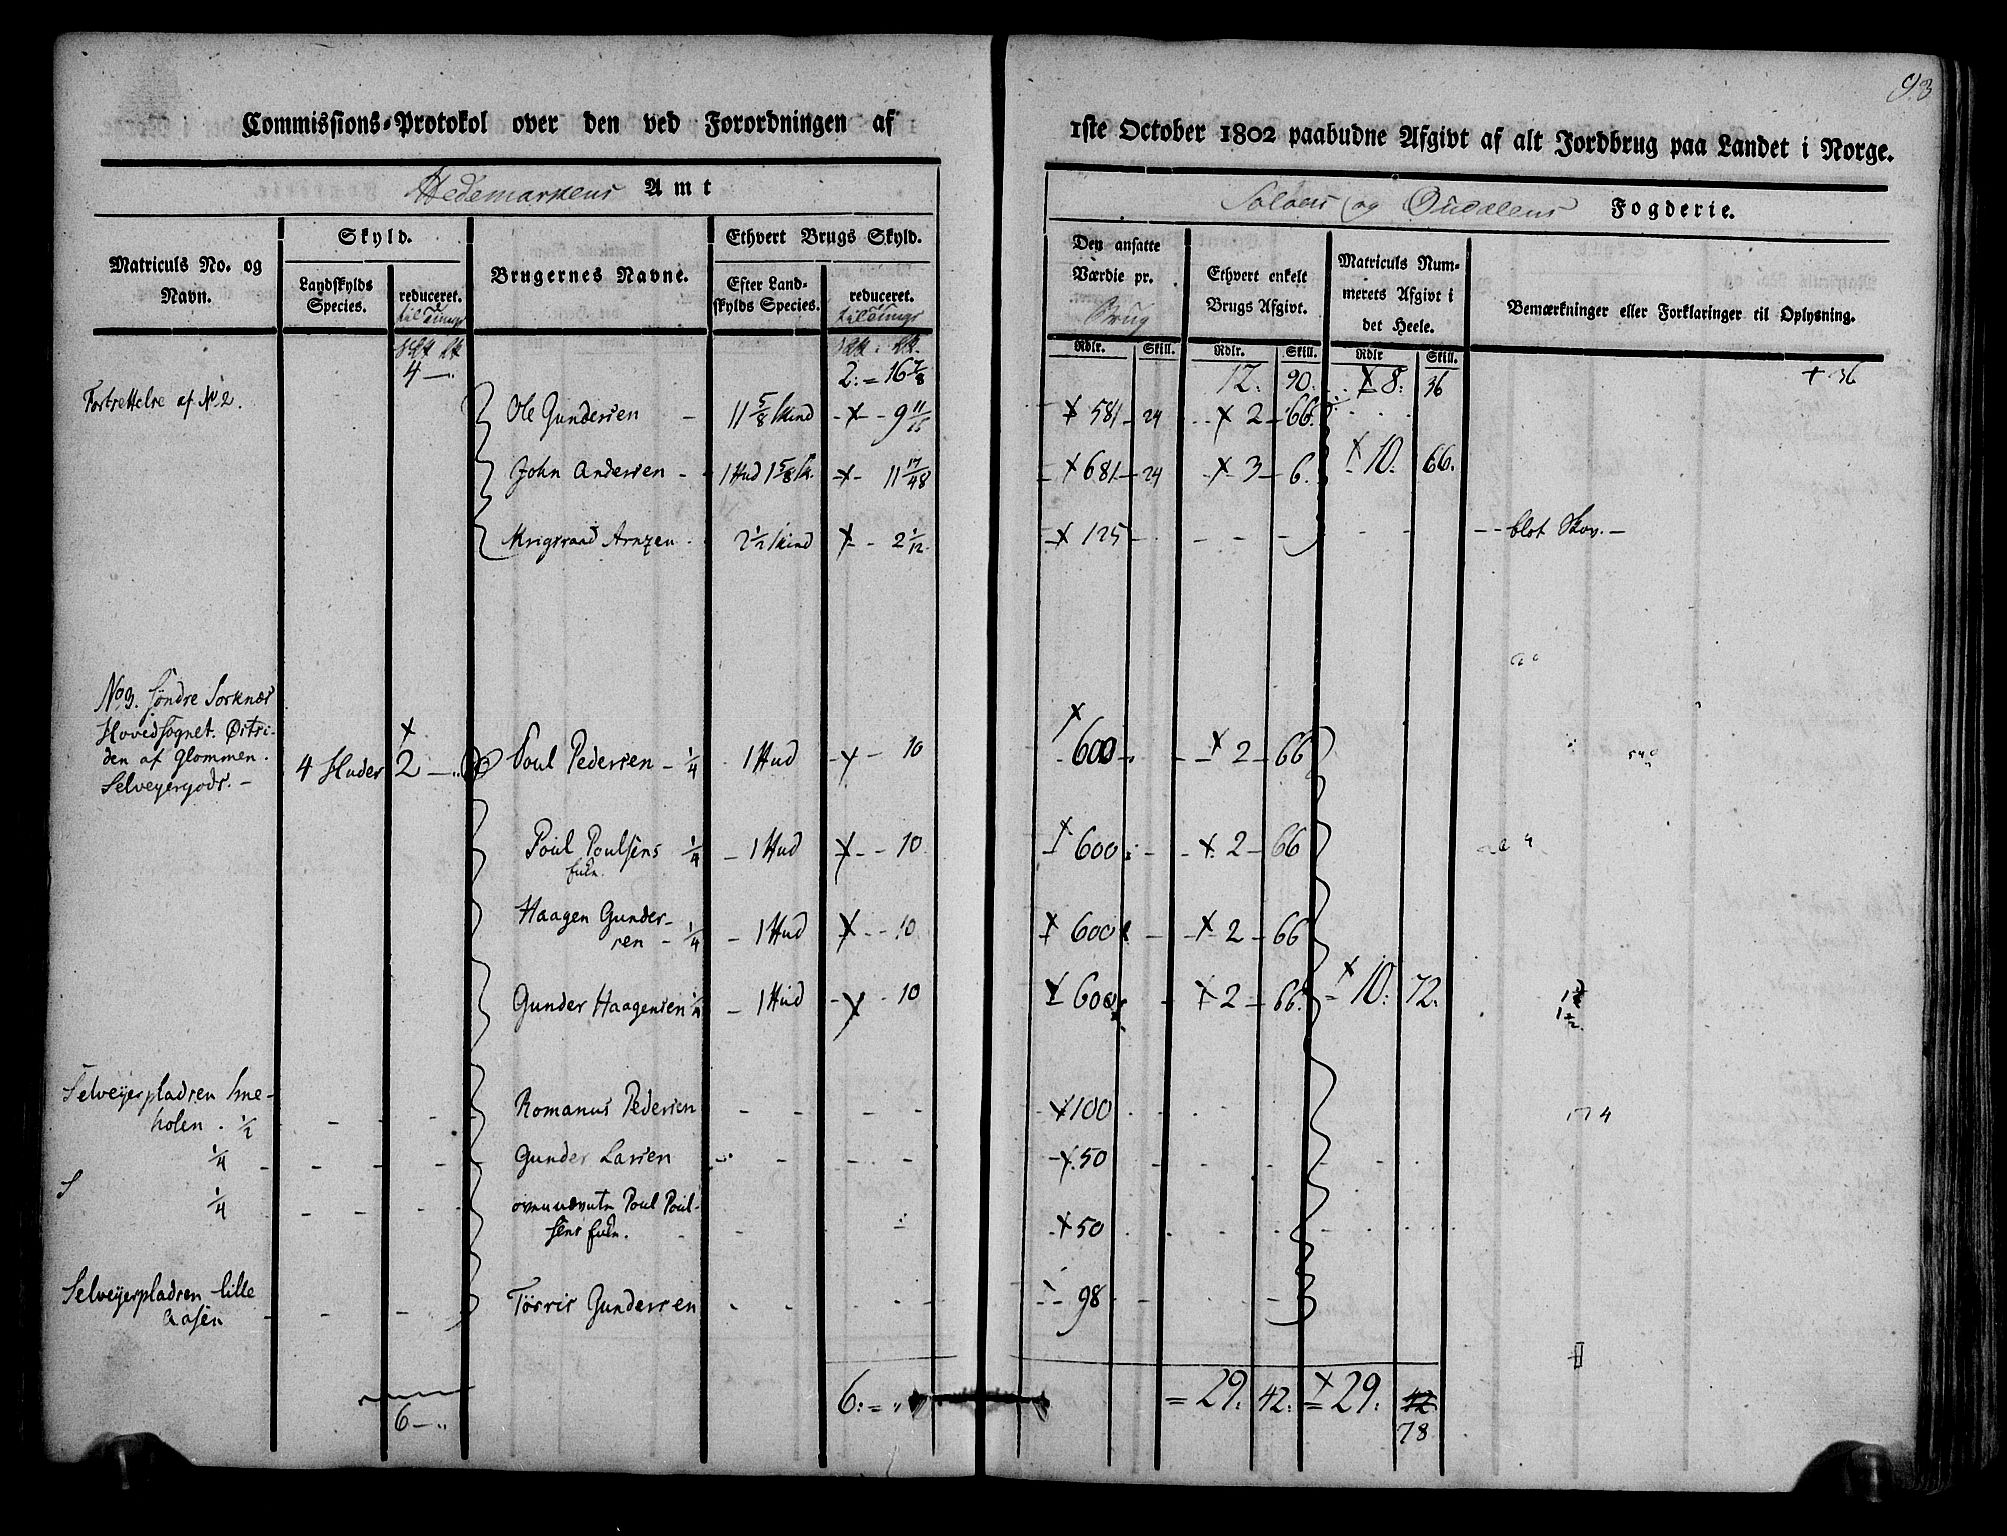 93
Commissions-Protokol over den ved Forordningen af
1ste October 1802 paabudne Afgivt af alt Jordbrug paa Landet i Norge.
Hedemarkens Amt
Soløers og Oudalens Fogderie.
Matriculs No. og Navn.
Skyld.
Landskylds Species.
reduceret.
Brugernes Navne.
Ethvert Brugs Skyld.
Efter Landskylds Species.
reduceret.
Den ansatte Værdie pr. Brug
Ethvert enkelt Brugs Afgivt.
Matriculs Nummerets Afgivt i det Heele.
Bemærkninger eller Forklaringer til Oplysning.
Rdlr. Skill. Rdlr. Skill. Rdlr Skill.
4 —. 2: = 16 7/8 12. 90. 8: 36 + 36
Fortsettelse af No 2.
Ole Gundersen 11 5/8 Skind 9 11/16 581 24 2 66.
John Andersen 1 Hud 1 5/8 Sk. 11 17/48 681 24 3 6. 10. 66.
Arnzen 2 1/2 Skind 2 1/12 125 blot Skov.
No 3. Søndre Sorknæs
Hovedsognet. Østsi-
den af Glommen.
Selveyergods.
4 Huder 2 Poul Pedersen 1/4 1 Hud 10 600 2 66
Poul Poulsens 1/4 1 Hud 10 600 2 66
Enke.
Haagen Gunder-
sen 1/4 1 Hud 10 600 2 66
Gunder Haagensen 1/4 1 Hud 10 600 2 66. 10. 72.
Selveyerpladsen Sme-
holen. 1/2 Romanus Pedersen 100
1/4 Gunder Larsen 50
1/4 ovennævnte Poul Poul-
sens Enke. 50
Selveyerpladsen lille
Aasen Tosris Gundersen 98
6 6: = 29. 42. = 29. 42
78